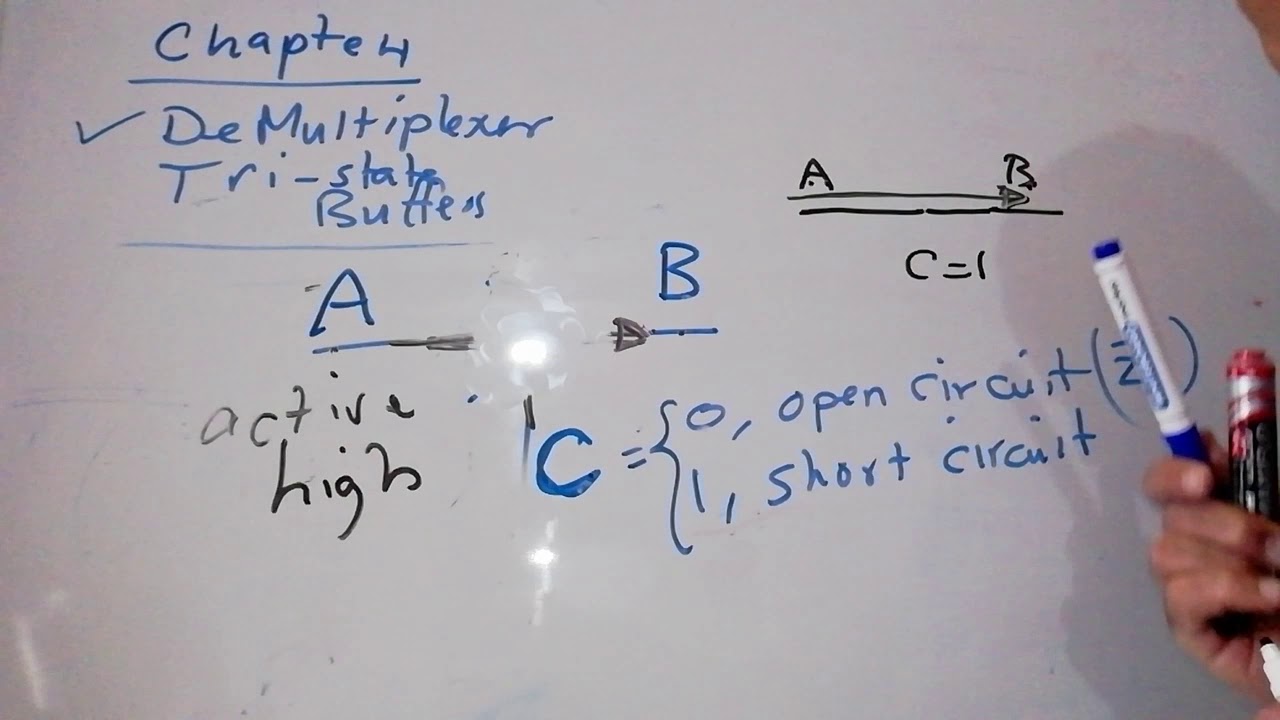 Chapter 4
DeMultiplexer
Tri-state
Buffers
A B
C=1
A B
active
high
C = { 0, open circuit (Z)
1, short circuit